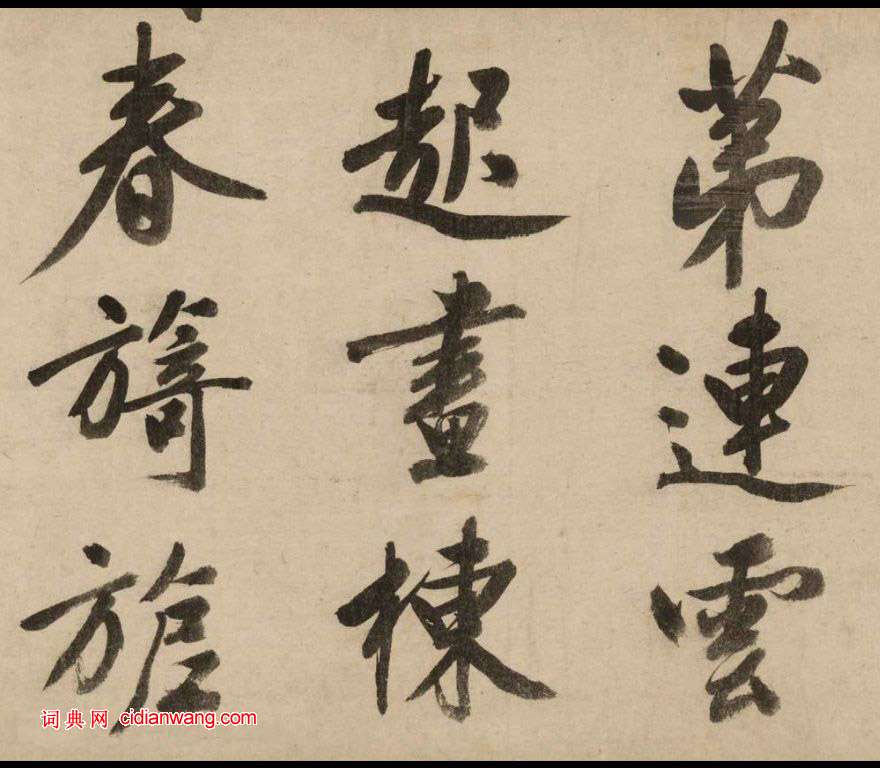 苐連雲
起畫棟
春旖旎
词典网 cidianwang.com